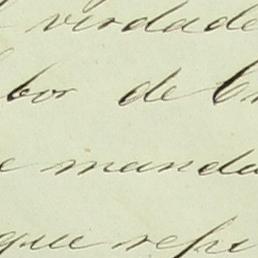 verdade
bor de
e manda
que